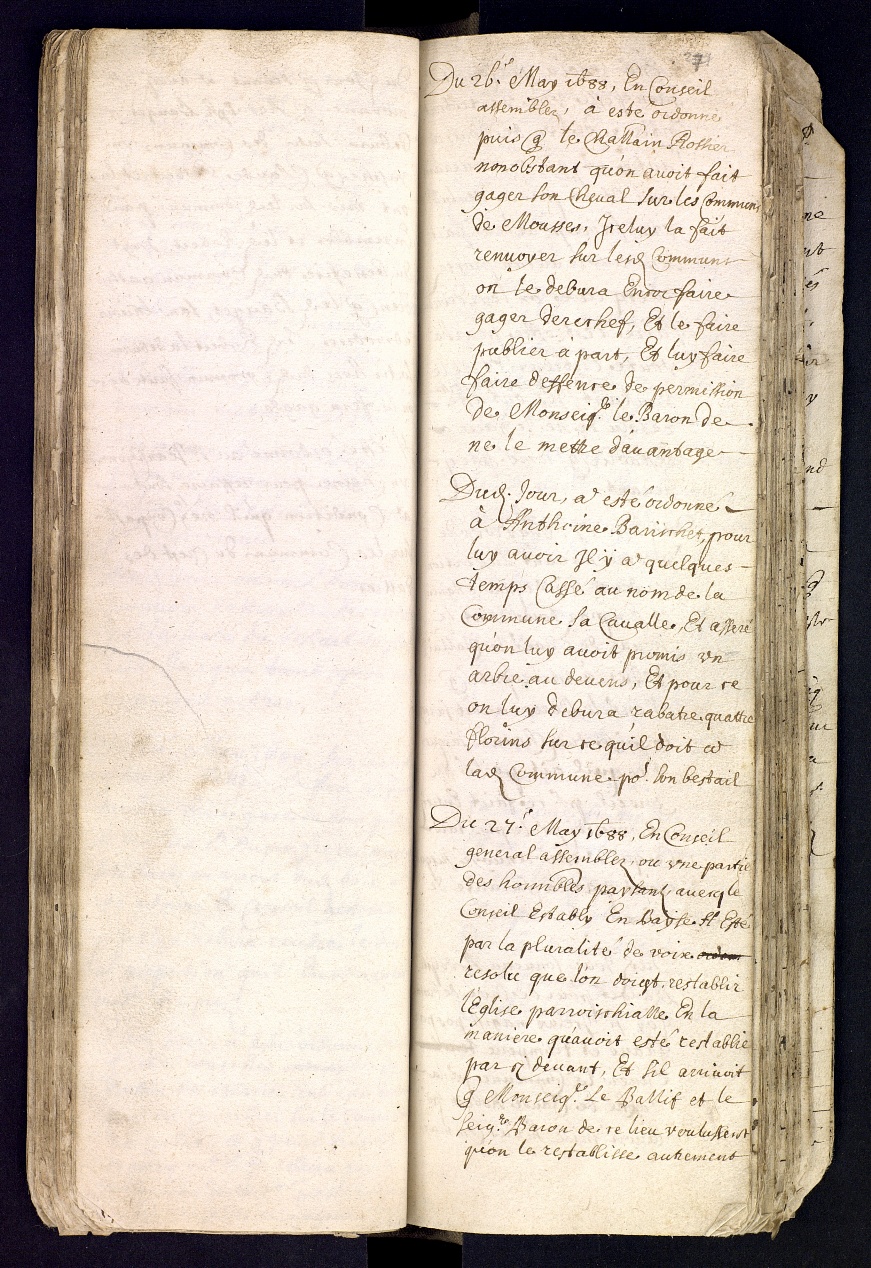 Du 26.e May 1688, En Conseil
assemblez, à esté ordonné
puis q le Chastlain Rossier
nonobstant qu'on auoit fait
gager son Cheual sur les Communs
de Mousses, Jceluy la fait
renuoyer sur lesd Communs
on le debura Encor faire
gager derechef, Et le faire
publier à part, Et luy faire
faire deffence de permission
de Monseigr le Baron de
ne le mettre dauantage
Dud. Jour, a esté ordonné
à Anthoine Barischet, pour
luy avoir Jl y a quelques
temps Cassé au nom de la
Commune sa Caualle, Et asseré
qu'on luy auoit promis vn
arbre au deuens, Et pour ce
on luy debura rabatre quattre
florins sur ce quil doit a
lad Commune por son bestail
Du 27.e May 1688, En Conseil
general assemblez, ou vne partie
des hommbles parlants auecq le
Conseil Estably En
par la pluralité de voix
resolu que l'on doiegt restablir
l'Eglise parroischialle En la
maniere qu'auoit esté restablie
par cy deuant, Et sil arriuoit
q Monseigr Le Ballif et le
seigr Baron de ce lieu voulussent
qu'on le restablisse autrement